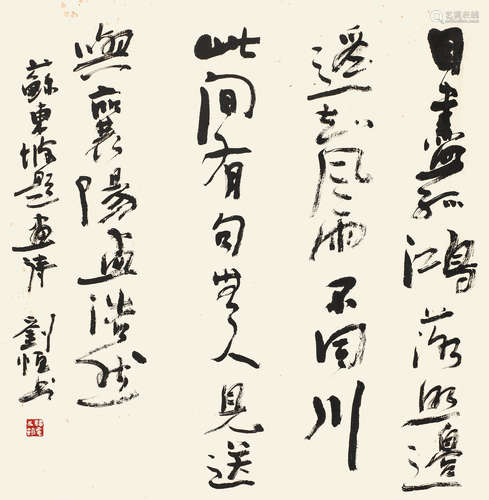 目盡孤鴻落照邊
遙知風雨不同川
此間有句無人見送
與襄陽孟浩然
蘇東坡題畫詩 劉恒書